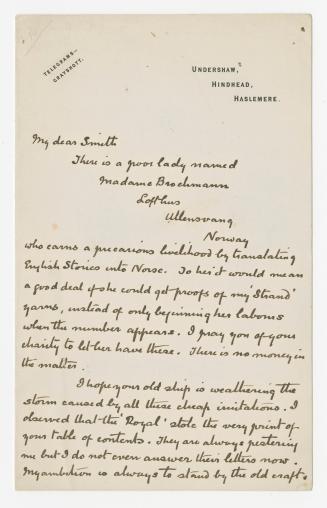 TELEGRAMS—
GRAYSHOTT.
UNDERSHAW,
HINDHEAD,
HASLEMERE.
My dear Smith
There is a poor lady named
Madame Brochmann
Lofthus
Ullensvang
Norway
who earns a precarious livelihood by translating
English Stories into Norse. To her it would mean
a good deal if she could get proofs of my 'Strand'
yarns, instead of only beginning her labours
when the number appears. I pray you of your
charity to let her have these. There is no money in
the matter.
I hope your old ship is weathering the
storm caused by all these cheap imitations. I
observed that the 'Royal' stole the very print of
your table of contents. They are always pestering
me but I do not even answer their letters now.
My ambition is always to stand by the old craft.